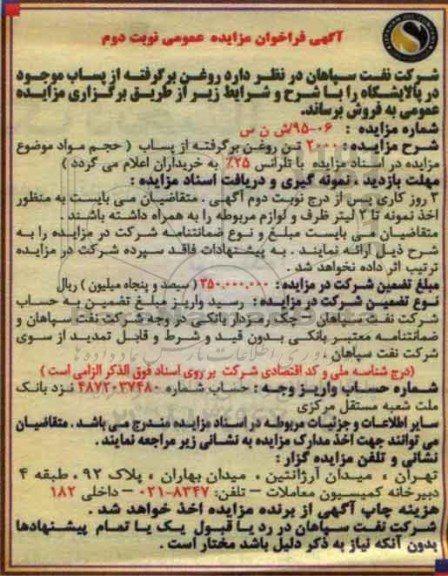 آگهی فراخوان مزایده عمومی نوبت دوم
شرکت نفت سپاهان در نظر دارد روغن برگرفته از پساب موجود
در پالایشگاه را با شرح و شرایط زیر از طریق برگزاری مزایده
عمومی به فروش برساند.
شماره مزایده : ۹۵-۰۶/ش ن س
شرح مزایده : ۲۰۰۰ تن روغن برگرفته از پساب ( حجم مواد موضوع
مزایده در اسناد مزایده با تلرانس ۲۵٪ به خریداران اعلام می گردد )
مهلت بازدید ، نمونه گیری و دریافت اسناد مزایده :
۳ روز کاری پس از درج نوبت دوم آگهی . متقاضیان می بایست به منظور
اخذ نمونه تا ۲ لیتر ظرف و لوازم مربوطه را به همراه داشته باشند .
متقاضیان می بایست مبلغ و نوع ضمانتنامه شرکت در مزایده را به
شرح ذیل ارائه نمایند . به پیشنهادات فاقد سپرده شرکت در مزایده
ترتیب اثر داده نخواهد شد .
مبلغ تضمین شرکت در مزایده : ۳۵۰.۰۰۰.۰۰۰ ( سیصد و پنجاه میلیون ) ریال
نوع تضمین شرکت در مزایده : رسید واریز مبلغ تضمین به حساب
شرکت نفت سپاهان – چک رمزدار بانکی در وجه شرکت نفت سپاهان و
ضمانتنامه معتبر بانکی بدون قید و شرط و قابل تمدید از سوی
شرکت نفت سپاهان .
(درج شناسه ملی و کد اقتصادی شرکت بر روی اسناد فوق الذکر الزامی است )
شماره حساب واریز وجه : حساب شماره ۴۸۷۲۰۳۷۴۸۰ نزد بانک
ملت شعبه مستقل مرکزی
سایر اطلاعات و جزئیات مربوطه در اسناد مزایده مندرج می باشد . متقاضیان
می توانند جهت اخذ مدارک مزایده به نشانی زیر مراجعه نمایند .
نشانی و تلفن مزایده گزار :
تهران ، میدان آرژانتین ، میدان بهاران ، پلاک ۹۲ ، طبقه ۴
دبیرخانه کمیسیون معاملات – تلفن: ۸۳۴۷-۰۲۱ – داخلی ۱۸۲
هزینه چاپ آگهی از برنده مزایده اخذ خواهد شد .
شرکت نفت سپاهان در رد یا قبول یک یا تمام پیشنهادها
بدون آنکه نیاز به ذکر دلیل باشد مختار است .